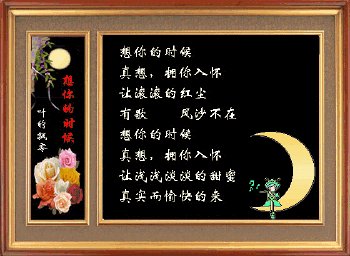 想你的时候
叶的飘零
想你的时候
真想，拥你入怀
让滚滚的红尘
有歌　风沙不在
想你的时候
真想，拥你入怀
让浅浅淡淡的甜蜜
真实而愉快的来